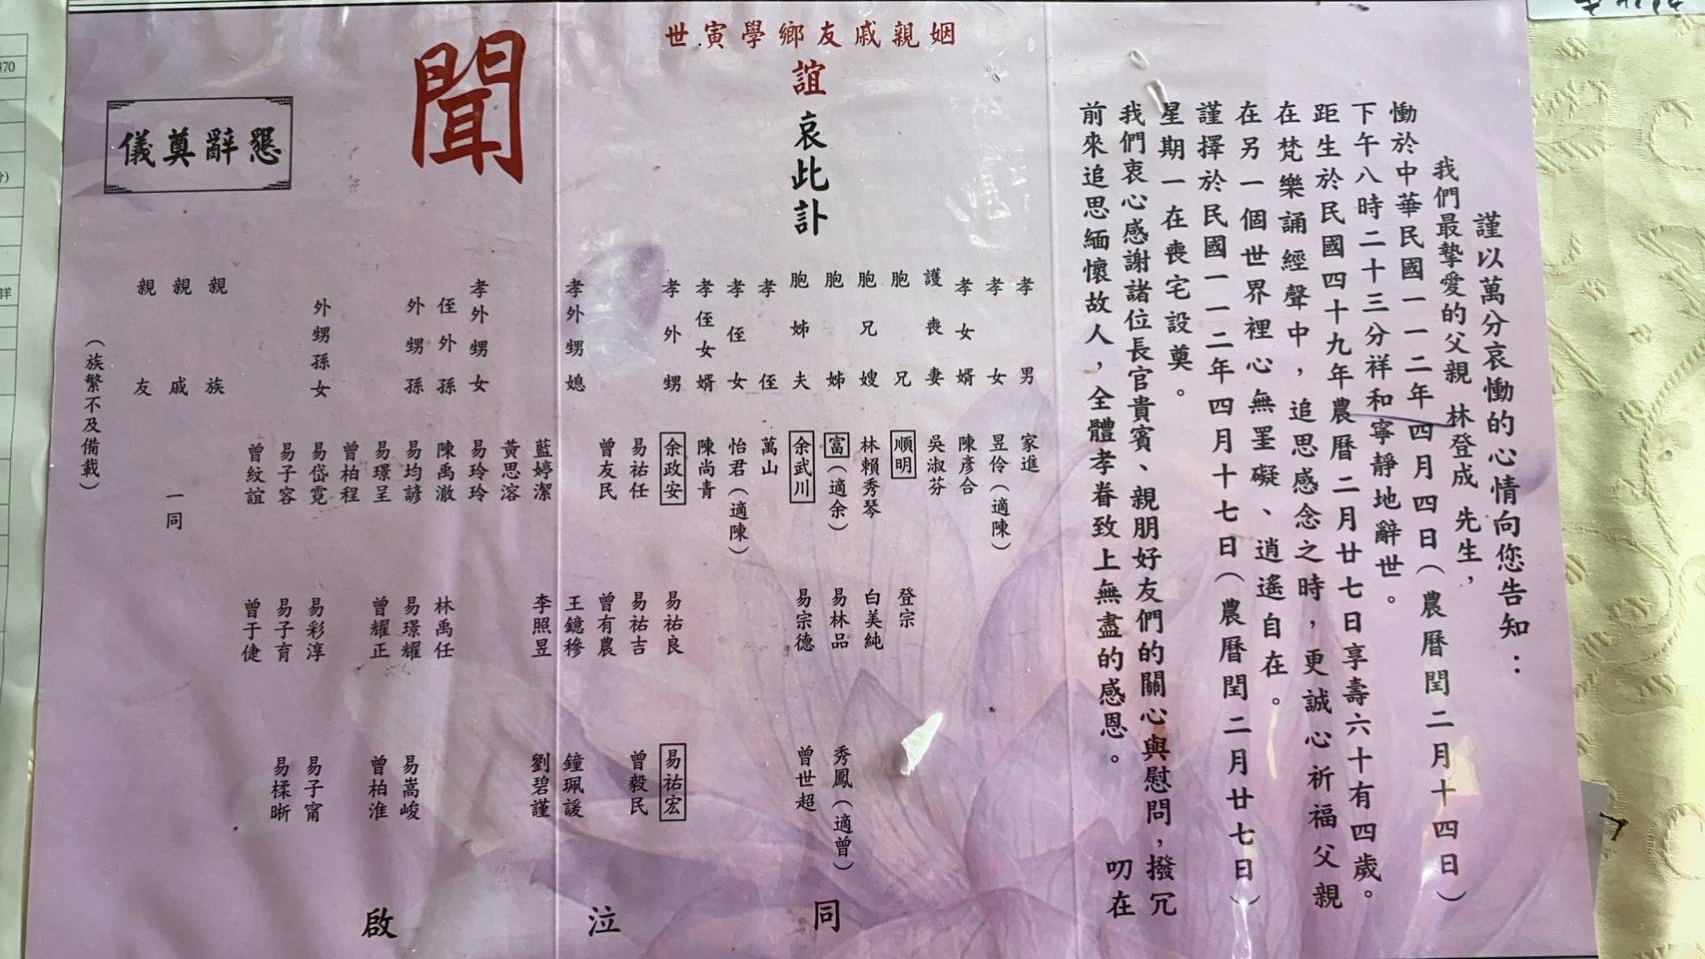 謹以萬分哀慟的心情向您告知：
我們最摯愛的父親 林登成 先生，
慟於中華民國一一二年四月四日（農曆閏二月十四日）
下午八時二十三分祥和寧靜地辭世。
距生於民國四十九年農曆二月廿七日享壽六十有四歲。
在梵樂誦經聲中，追思感念之時，更誠心祈福父親
在另一個世界裡心無罣礙、逍遙自在。
謹擇於民國一一二年四月十七日（農曆閏二月廿七日）
星期一在喪宅設奠。
我們衷心感謝諸位長官貴賓、親朋好友們的關心與慰問，撥冗
前來追思緬懷故人，全體孝眷致上無盡的感恩。 叨在
世寅學鄉友戚親姻
誼 哀此訃
聞
孝男 家進
孝女 昱伶（適陳）
孝女婿 陳彥合
護喪妻 吳淑芬
胞兄 順明 登宗
胞兄嫂 林賴秀琴 白美純
胞姊 富（適余） 易林品 秀鳳（適曾）
胞姊夫 余武川 易宗德 曾世超
孝侄 萬山
孝侄女 怡君（適陳）
孝侄女婿 陳尚青
孝外甥 余政安 易祐良 易祐宏
易祐任 易祐吉 曾毅民
曾友民 曾有農
孝外甥媳 王鐿穇 鐘珮諼
藍婷潔 李照昱 劉碧謹
黃思溶
孝外甥女 易玲玲
侄外孫 陳禹澈 林禹任
外甥孫 易均諺 易璟耀 易嵩峻
易璟呈 曾耀正 曾柏淮
曾柏程
外甥孫女 易岱霓 易彩淳 易子甯
易子容 易子育 易楺晰
曾紋誼 曾于倢
親族
親戚 一同
親友
（族繁不及備載）
同 泣 啟
儀奠辭懇
370